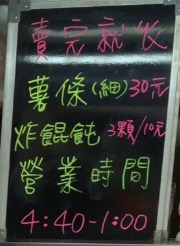 賣完就收
薯條(細)30元
炸餛飩 3顆/10元
營業時間
4:40-1:00